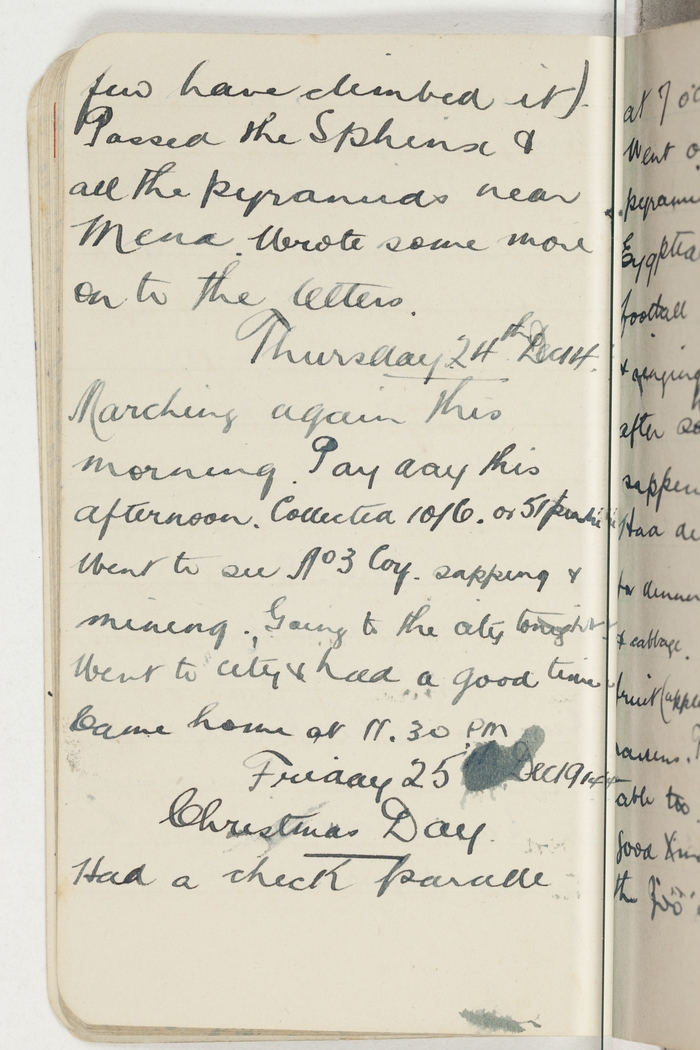 few have climbed it)
Passed the Sphinx &
all the pyramids near
Mena. Wrote some more
on to the letters.
Thursday 24th Dec 14.
Marching again this
morning. Pay day this
afternoon. Collected 10/6. or 51
Went to see No 3 Coy. sapping &
mining. Going to the city tonight
Went to city & had a good time
Came home at 11.30 PM
Friday 25 Dec 1914
Christmas Day.
Had a check parade
at 7
Went
Egyptia
football
&
after
sappin
Had
for dinner
& cabbage.
fruit (apple
able to
good Xm
the